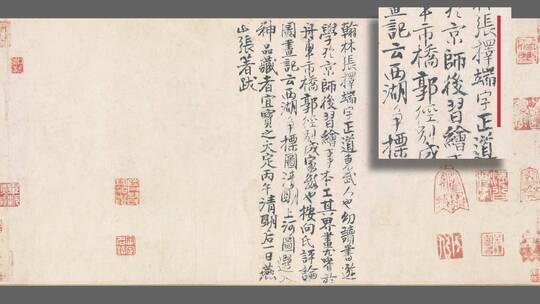 翰林張擇端字正道東武人也幼讀書遊
學於京師後習繪事本工其界畫尤嗜於
舟車市橋郭徑別成家數也按向氏評論
圖畫記云西湖爭標圖清明上河圖選入
神品藏者宜寶之大定丙午清明后一日燕
山張著跋
林張擇端字正道
於京師後習繪
車市橋郭徑別成
記云西湖爭標